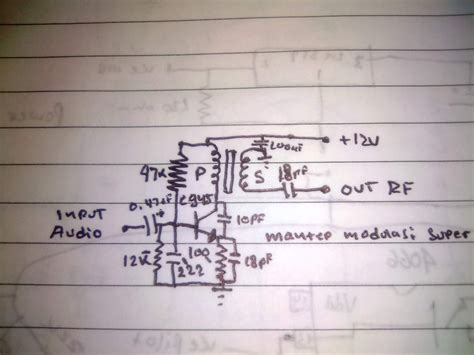 +12V
200uF
47K
P
S
18pF
OUT RF
C945
0.47uF
+
10pF
INPUT
Audio
mantep modulasi super
12K
222
100
18pF
4066